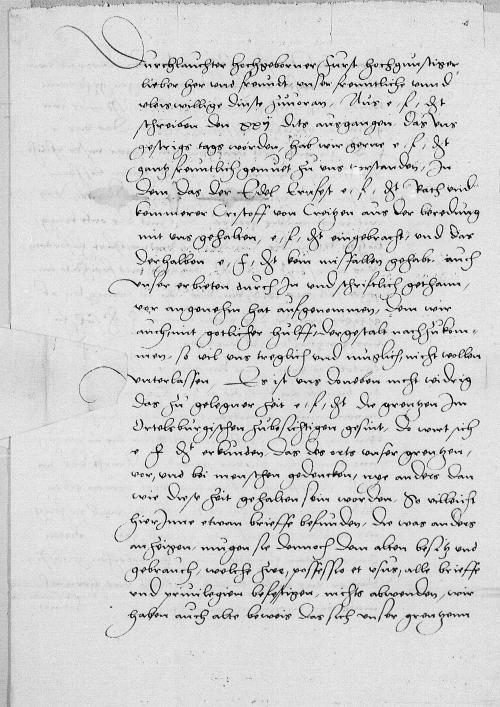 Durchlauchter Hochgeborner Furst hochgunstiger
lieber her und freundt, unser freuntliche unnd
vleis willige dinste zuuoran, Aus e, f, dt
schreiben den xxij dits ausgangen, das uns
gestrigs tags worden, hab wir gerne e, f, dt
gantz freuntlich gemuet zu uns verstanden, In
dem das der Edel Ernfest e, f, dt Rath und
kemmerer Cristoff von Creitzen aus der beredung
mit uns gehalten, e, f, dt eingebracht, und das
derhalben e, f, dt kein misfallen gehabt auch
unser erbieten durch In und schriftlich gethann,
vor angenehm hat aufgenommen, dem wir
auch mit gotlicher hulff, dergestalt nachzukom-
men, so vil uns treglich und muglich, nicht wollen
unterlassen, Es ist uns doneben nicht widrig
das zu gelegner zeit e, f, dt die grentzen Im
Ortelsburgischen zubesichtigen gesint, do wirt sich
e f dt erkunden, das des orts unser grentzen,
vor, und bei menschen gedencken, nye anders dan
wie diese zeit gehalten sein worden, So villeicht
hier Inne etwan brieffe befunden, die was anders
anzeigen, mugen sie dennoch den alten besitz und
gebrauch, welche hier, possessio et usus, alle brieffe
und priuilegien befestigen, nichts abwenden, wir
haben auch alte beweis das sich unser grentzenn